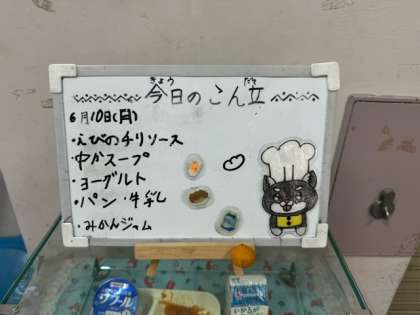 きょう だて
今日のこん立
6月10日(月)
・えびのチリソース
・中かスープ
・ヨーグルト
・パン ・牛乳
・みかんジャム
ソフール